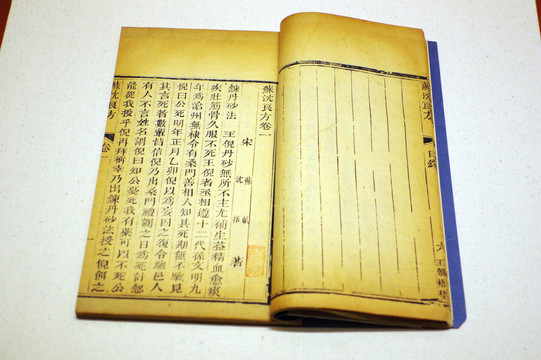 蘇沈良方
目錄
六
蘇沈良方卷一
宋 蘇軾 沈括 著
鍊丹砂法 王倪丹砂無所不主尤補生益精血愈痰
疾壯筋骨久服不死王倪者丞相遵十二代孫文明九
年為滄州無棣令有桑門善相人知其死期無不驗見
倪曰公死明年正月乙卯倪以為妄囚之復令驗邑人
其言死者數輩皆信倪乃出桑門禮謝之日為死計忽
有人不言姓名謂倪曰知公憂死我有藥可以不死公
能從我授乎倪再拜稱幸乃出鍊丹砂法授之倪餌之
蘇沈良方
卷一